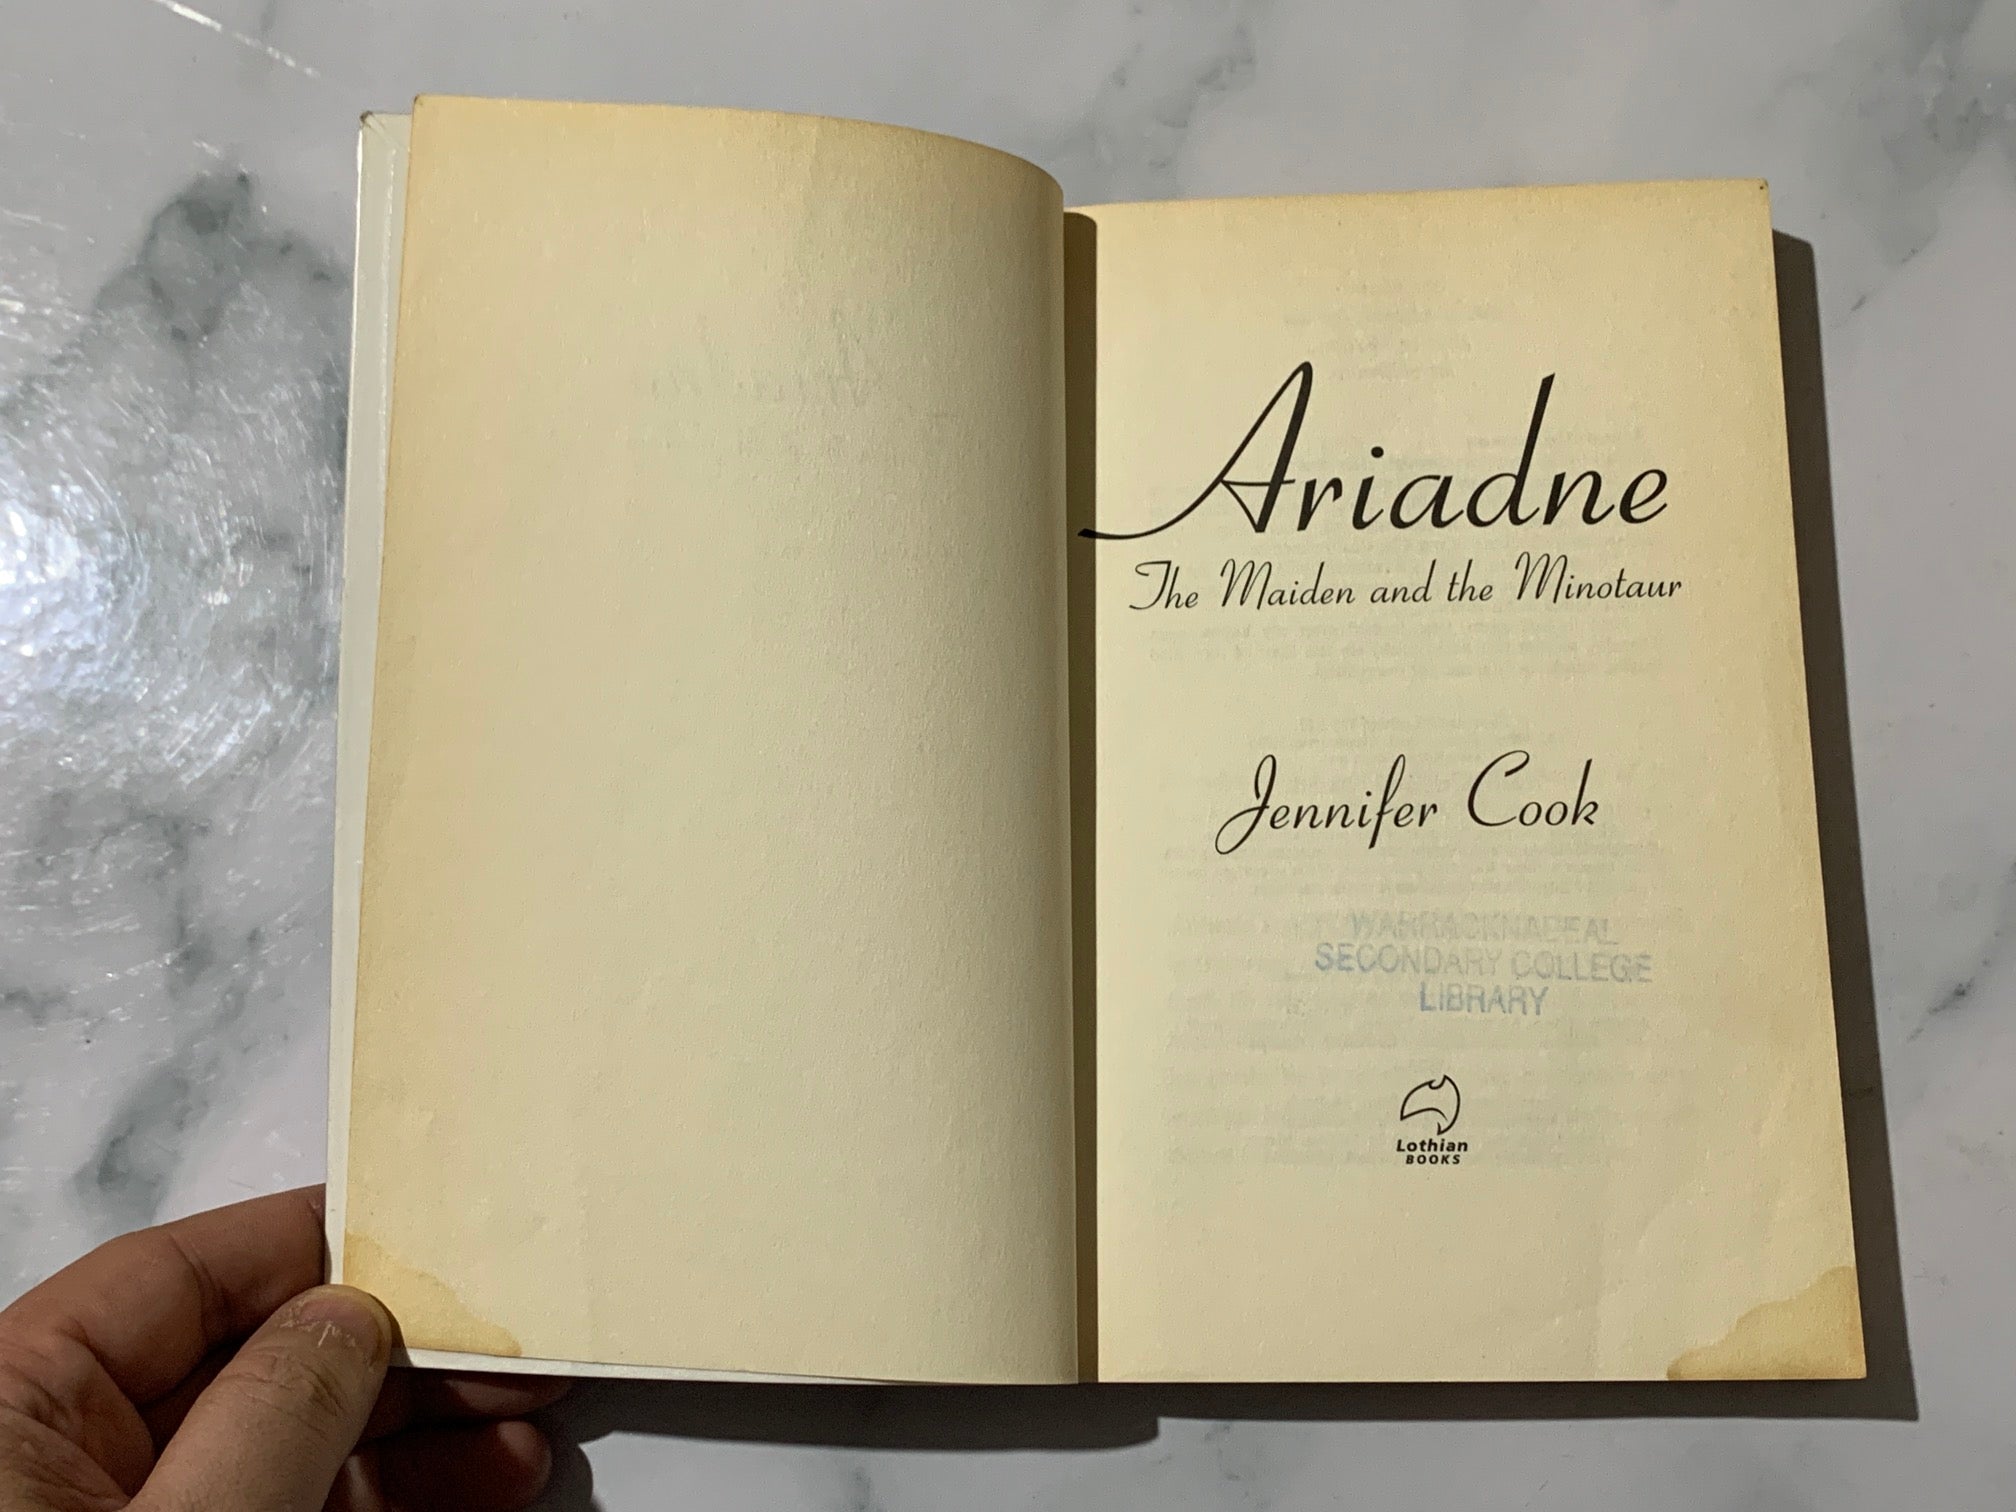 Ariadne
The Maiden and the Minotaur
Jennifer Cook
WARRACKNABEAL
SECONDARY COLLEGE
LIBRARY
Lothian
BOOKS